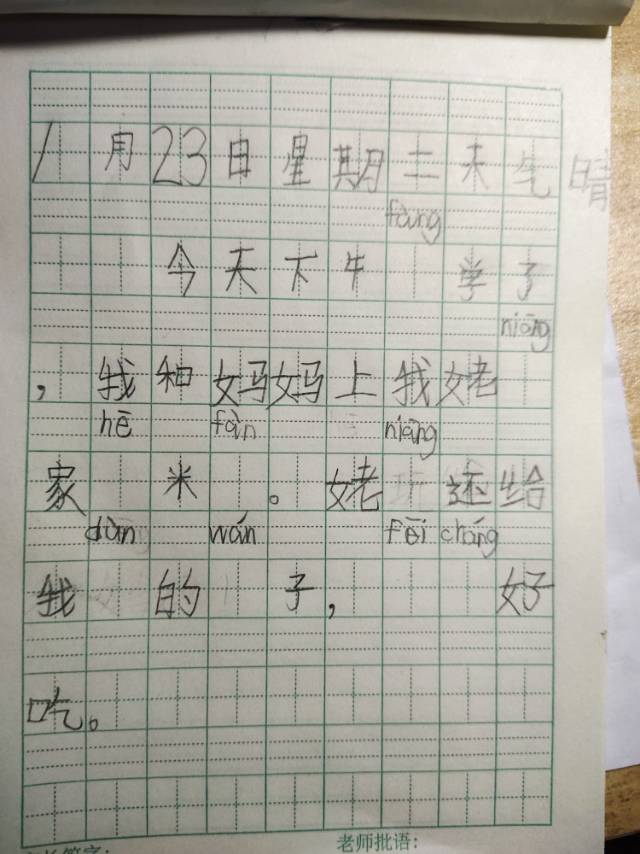 1月23日星期二天气晴
fàng
今天下午 学了
niāng
,我和妈妈上我姥
hē fàn niāng
家 米 。姥 还给
dùn wán fēi cháng
我 的 子, 好
吃。
老师批语: